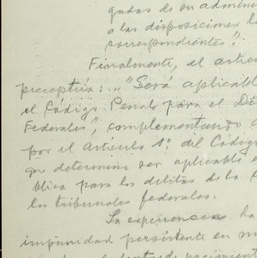 gadas de su admin
a las disposiciones l
correspondiente".
Finalmente, el artíc
preceptúa:..."Será aplicabl
el Código Penal para el D
Federales", complementando
por el Artículo 1º del Códig
que determina ser aplicable e
blica para los delitos de la
los tribunales federales.
La experiencia ha
impunidad persistente en